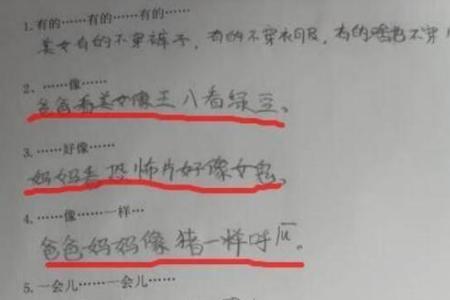 1. 有的……有的……有的……
美女有的不穿裤子，有的不穿衣服，有的啥也不穿
2、……像……
爸爸看美女像王八看绿豆。
3. ……好像……
妈妈看恐怖片好像女鬼。
4. ……像……一样…
爸爸妈妈像猪一样呼
5. 一会儿……一会儿……